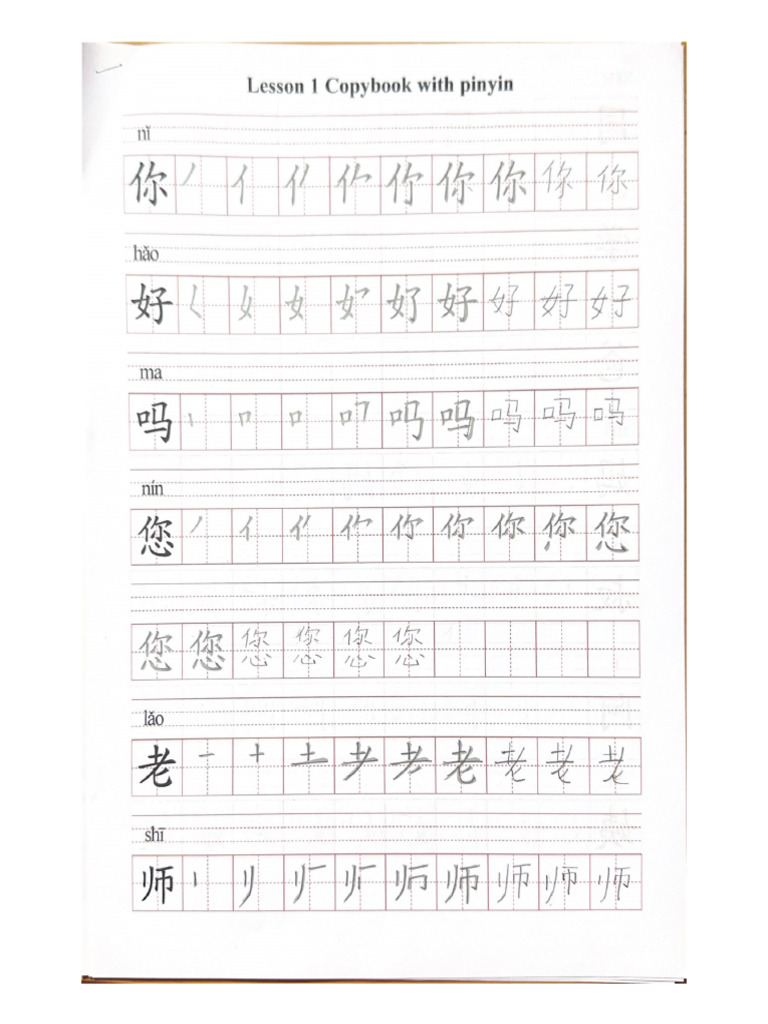 Lesson 1 Copybook with pinyin
nǐ
你 丿 亻 你 你 你 你
hǎo
好 く 女 女 好 好 好 好
ma
吗 丨 口 吗 吗 吗 吗 吗
nín
您 丿 亻 你 你 你 您
您 您 您 您 您 您
lǎo
老 一 十 土 耂 老 老 老 老
shī
师 丨 师 师 师 师